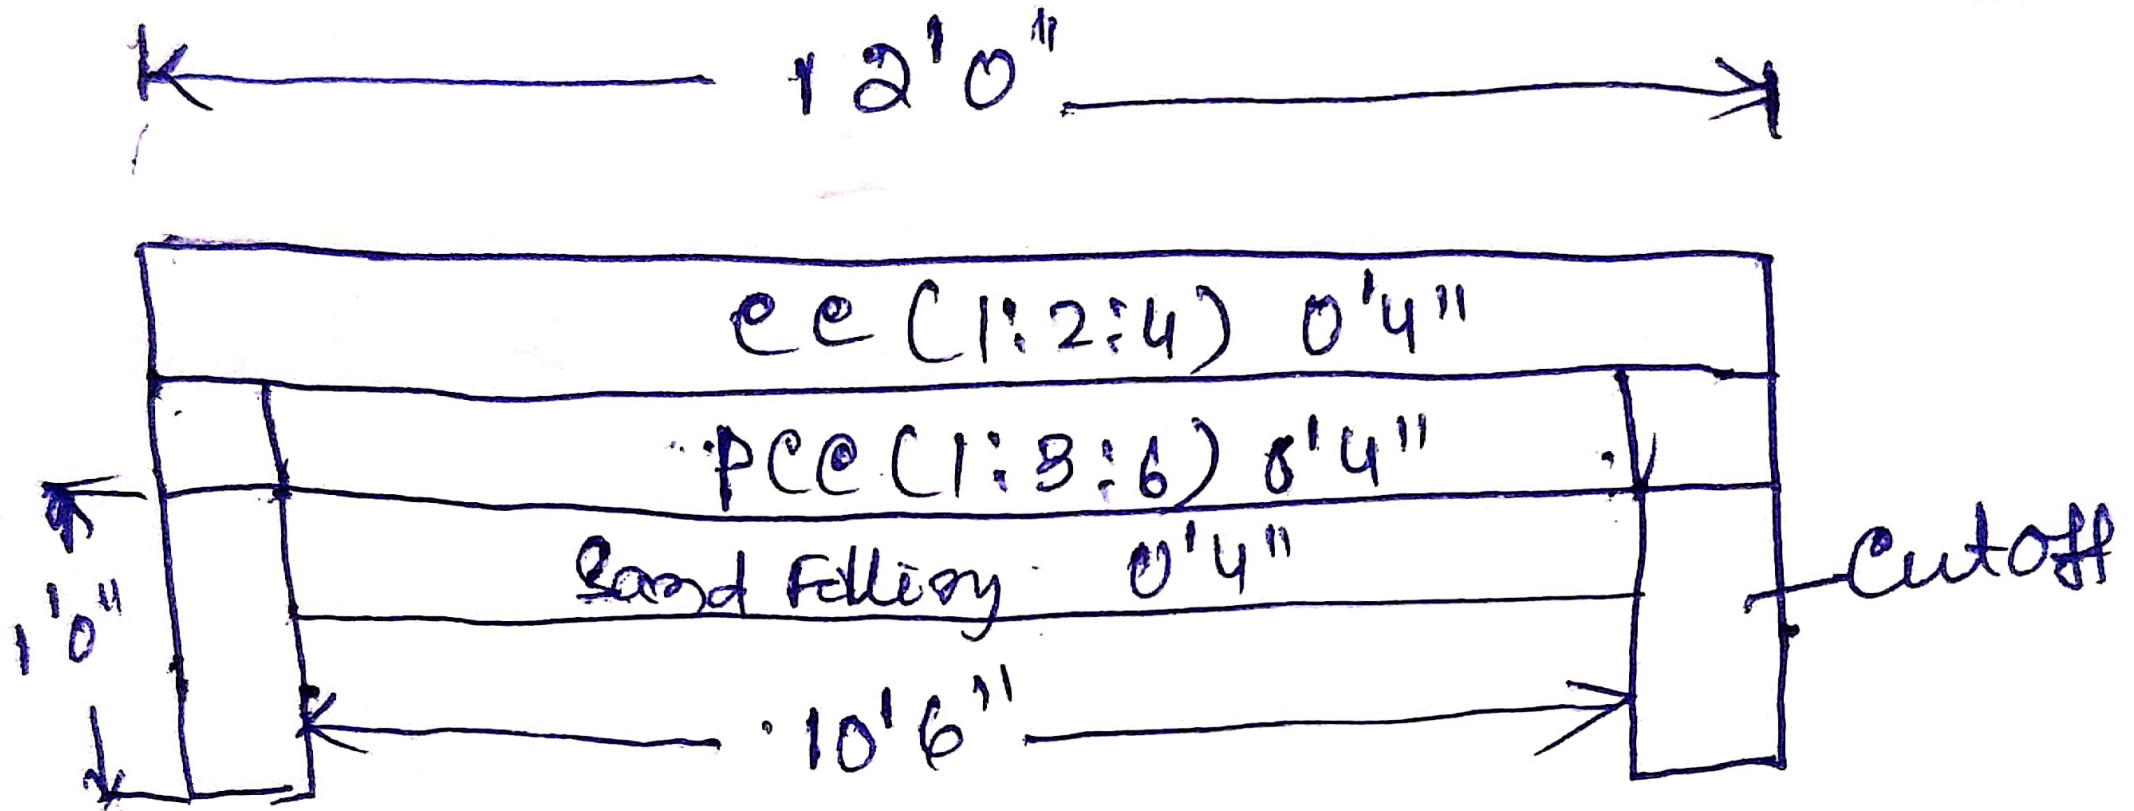 12'0"
CC (1:2:4) 0'4"
PCC (1:3:6) 0'4"
Sand Filling 0'4"
Cutoff
1'0"
10'6"